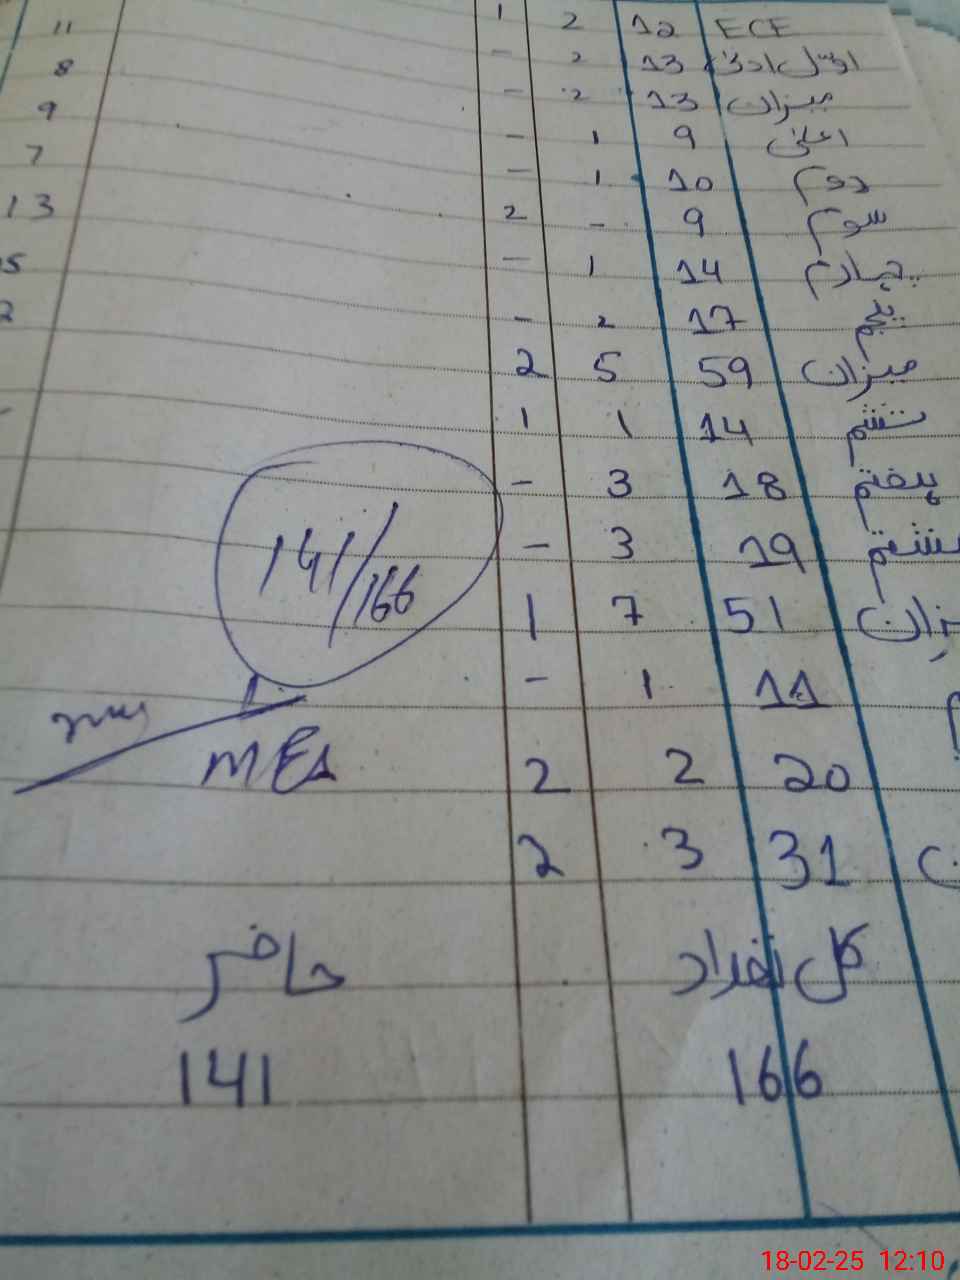 ECE 12 2 1 11
اول ادنیٰ 13 2 - 8
میزان 13 2 - 9
اعلیٰ 9 1 - 7
دوم 10 1 - 13
سوم 9 - 2
چہارم 14 1 -
پنجم 17 2 -
میزان 59 5 2
ششم 14 1 1
ہفتم 18 3 -
ہشتم 19 3 -
میزان 51 7 1
11 1 -
20 2 2
31 3 2
141/166
MEA
کل تعداد حاضر
166 141
18-02-25 12:10